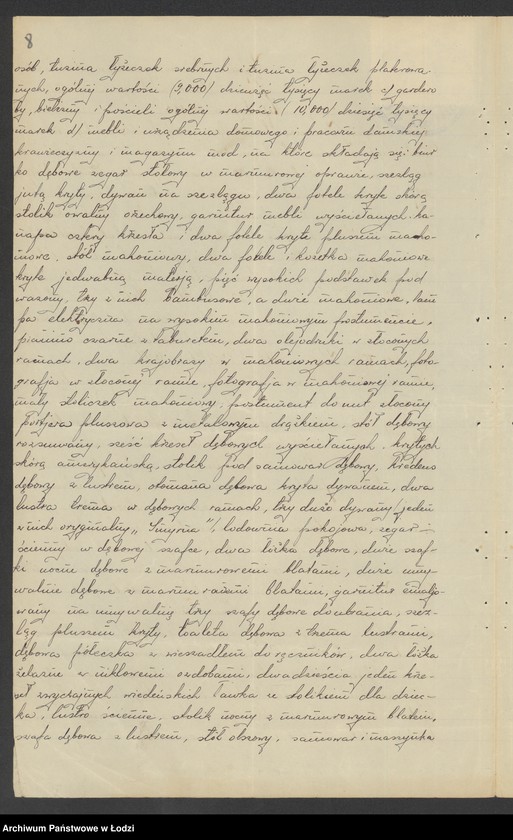 8
osób, tuzina łyżeczek srebrnych i tuzina łyżeczek platerowa
nych, ogólnej wartości (2,000) dwóch tysięcy marek c/ gardero
by, bielizny i pościeli ogólnej wartości (10,000) dziesięć tysięcy
marek d/ mebli i urządzenia domowego i pracowni damskiej
krawieczyzny i magazynu mód, na które składają się: biur
ko dębowe zegar stołowy w marmurowej oprawie, szezląg
jutą kryty, dywan na szezlągu, dwa fotele kryte skórą
stolik owalny orzechowy, garnitur mebli wyściełanych: ka-
napa cztery krzesła i dwa fotele kryte pluszem maho-
niowe, stół mahoniowy, dwa fotele i kozetka mahoniowe
kryte jedwabną materją, pięć wysokich podstawek pod
wazony, trzy z nich bambusowe, a dwie mahoniowe, lam
pa elektryczna na wysokim mahoniowym postumencie,
pianino czarne z taburetem, dwa olejodruki w złoconych
ramach, dwa krajobrazy w mahoniowych ramach, foto-
grafja w złoconej ramie, fotografja w mahoniowej ramie,
mały stoliczek mahoniowy, postument do nut złocony
portjera pluszowa z metalowym drążkiem, stół dębowy
rozsuwany, sześć krzeseł dębowych wyściełanych, krytych
skórą amerykańską, stolik pod samowar dębowy, kredens
dębowy z lustrem, otomana dębowa kryta dywanem, dwa
lustra trema w dębowych ramach, trzy duże dywany (jeden
z nich oryginalny „Smyrna"), lodownia pokojowa, zegar
ścienny w dębowej szafce, dwa łóżka dębowe, dwie szaf-
ki nocne dębowe z marmurowemi blatami, dwie umy-
walnie dębowe z marmurowemi blatami, garnitur emaljo-
wany na umywalnię trzy szafy dębowe do ubrania, szez-
ląg pluszem kryty, toaleta dębowa z trema lustrami,
dębowa półeczka z wieszadłem do ręczników, dwa łóżka
żelazne z niklowemi ozdobami, dwadzieścia jeden krze-
seł zwyczajnych wiedeńskich ławka ze stolikiem dla dziec-
ka, lustro ścienne, stolik nocny z marmurowym blatem,
szafa dębowa z lustrem, stół obszowy, samowar i maszynka
Archiwum Państwowe w Łodzi